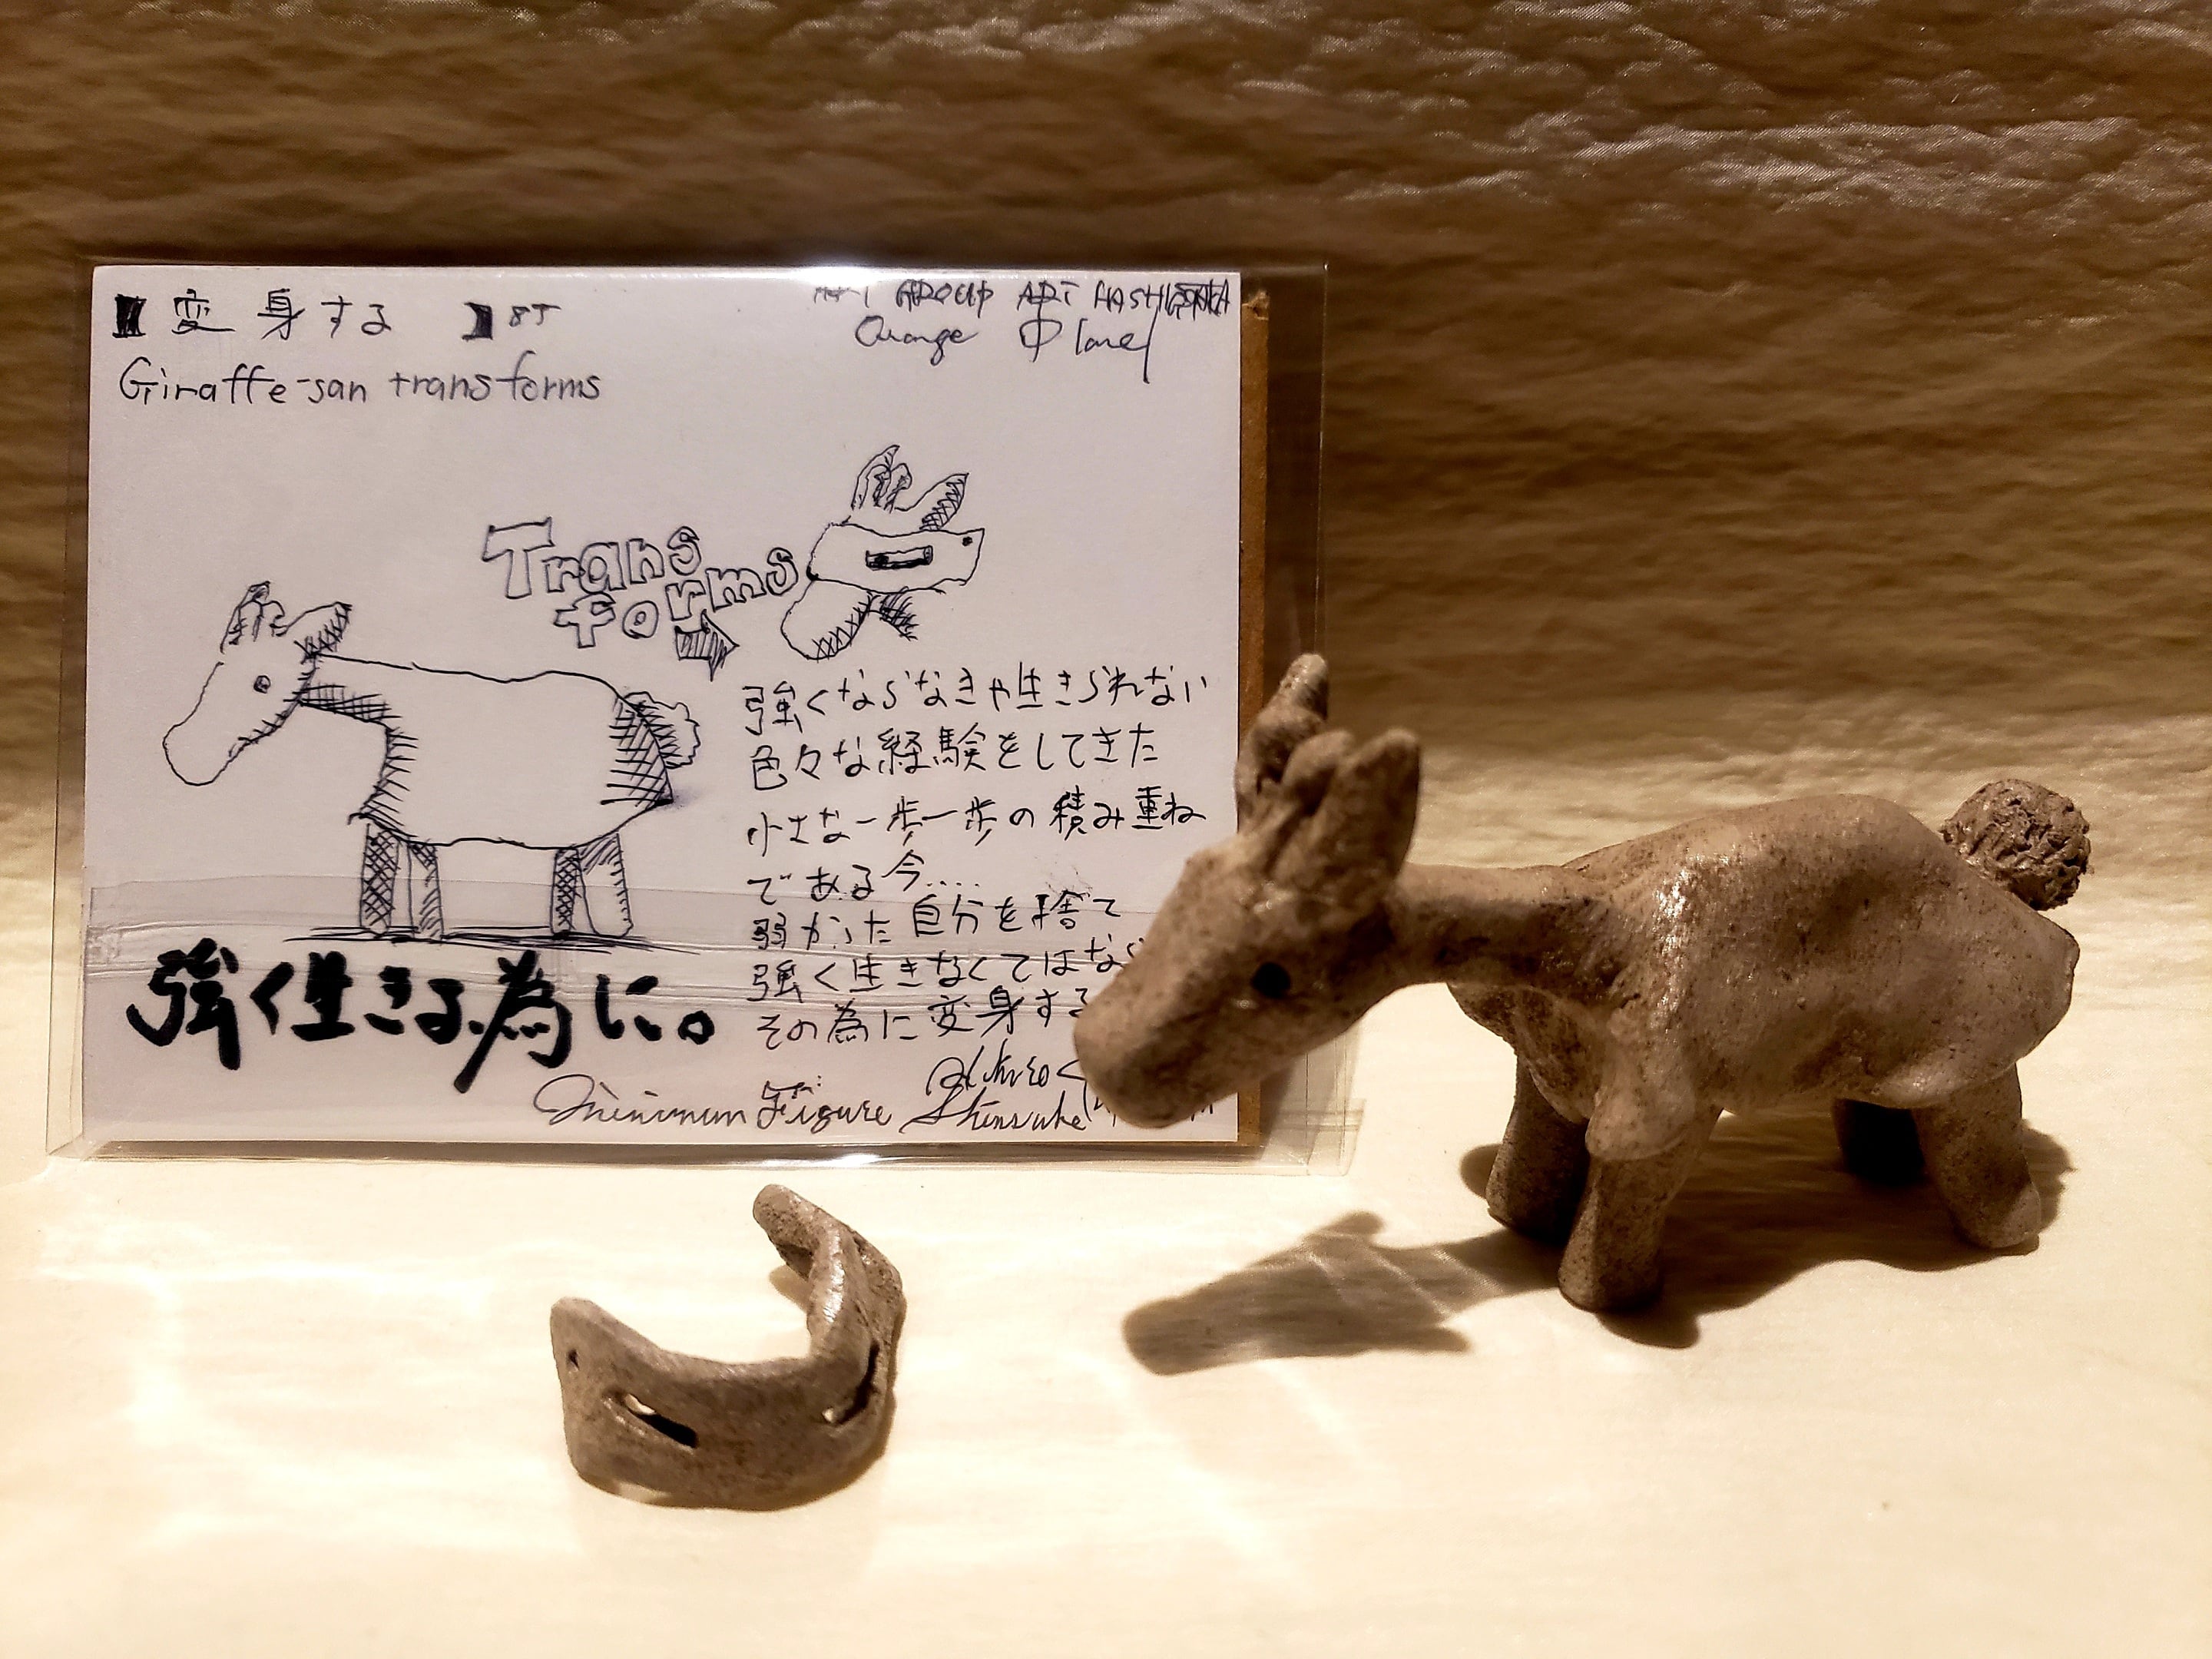 【変身する】
Giraffe-san transforms
GROUP ART
Orange Planet
Trans
forms
強くならなきゃ生きられない
色々な経験をしてきた
小さな一歩一歩の積み重ね
である今....
弱かった自分を捨て
強く生きなくてはなら
その為に変身する
強く生きる為に。
Minimum Figure
Shinsuke